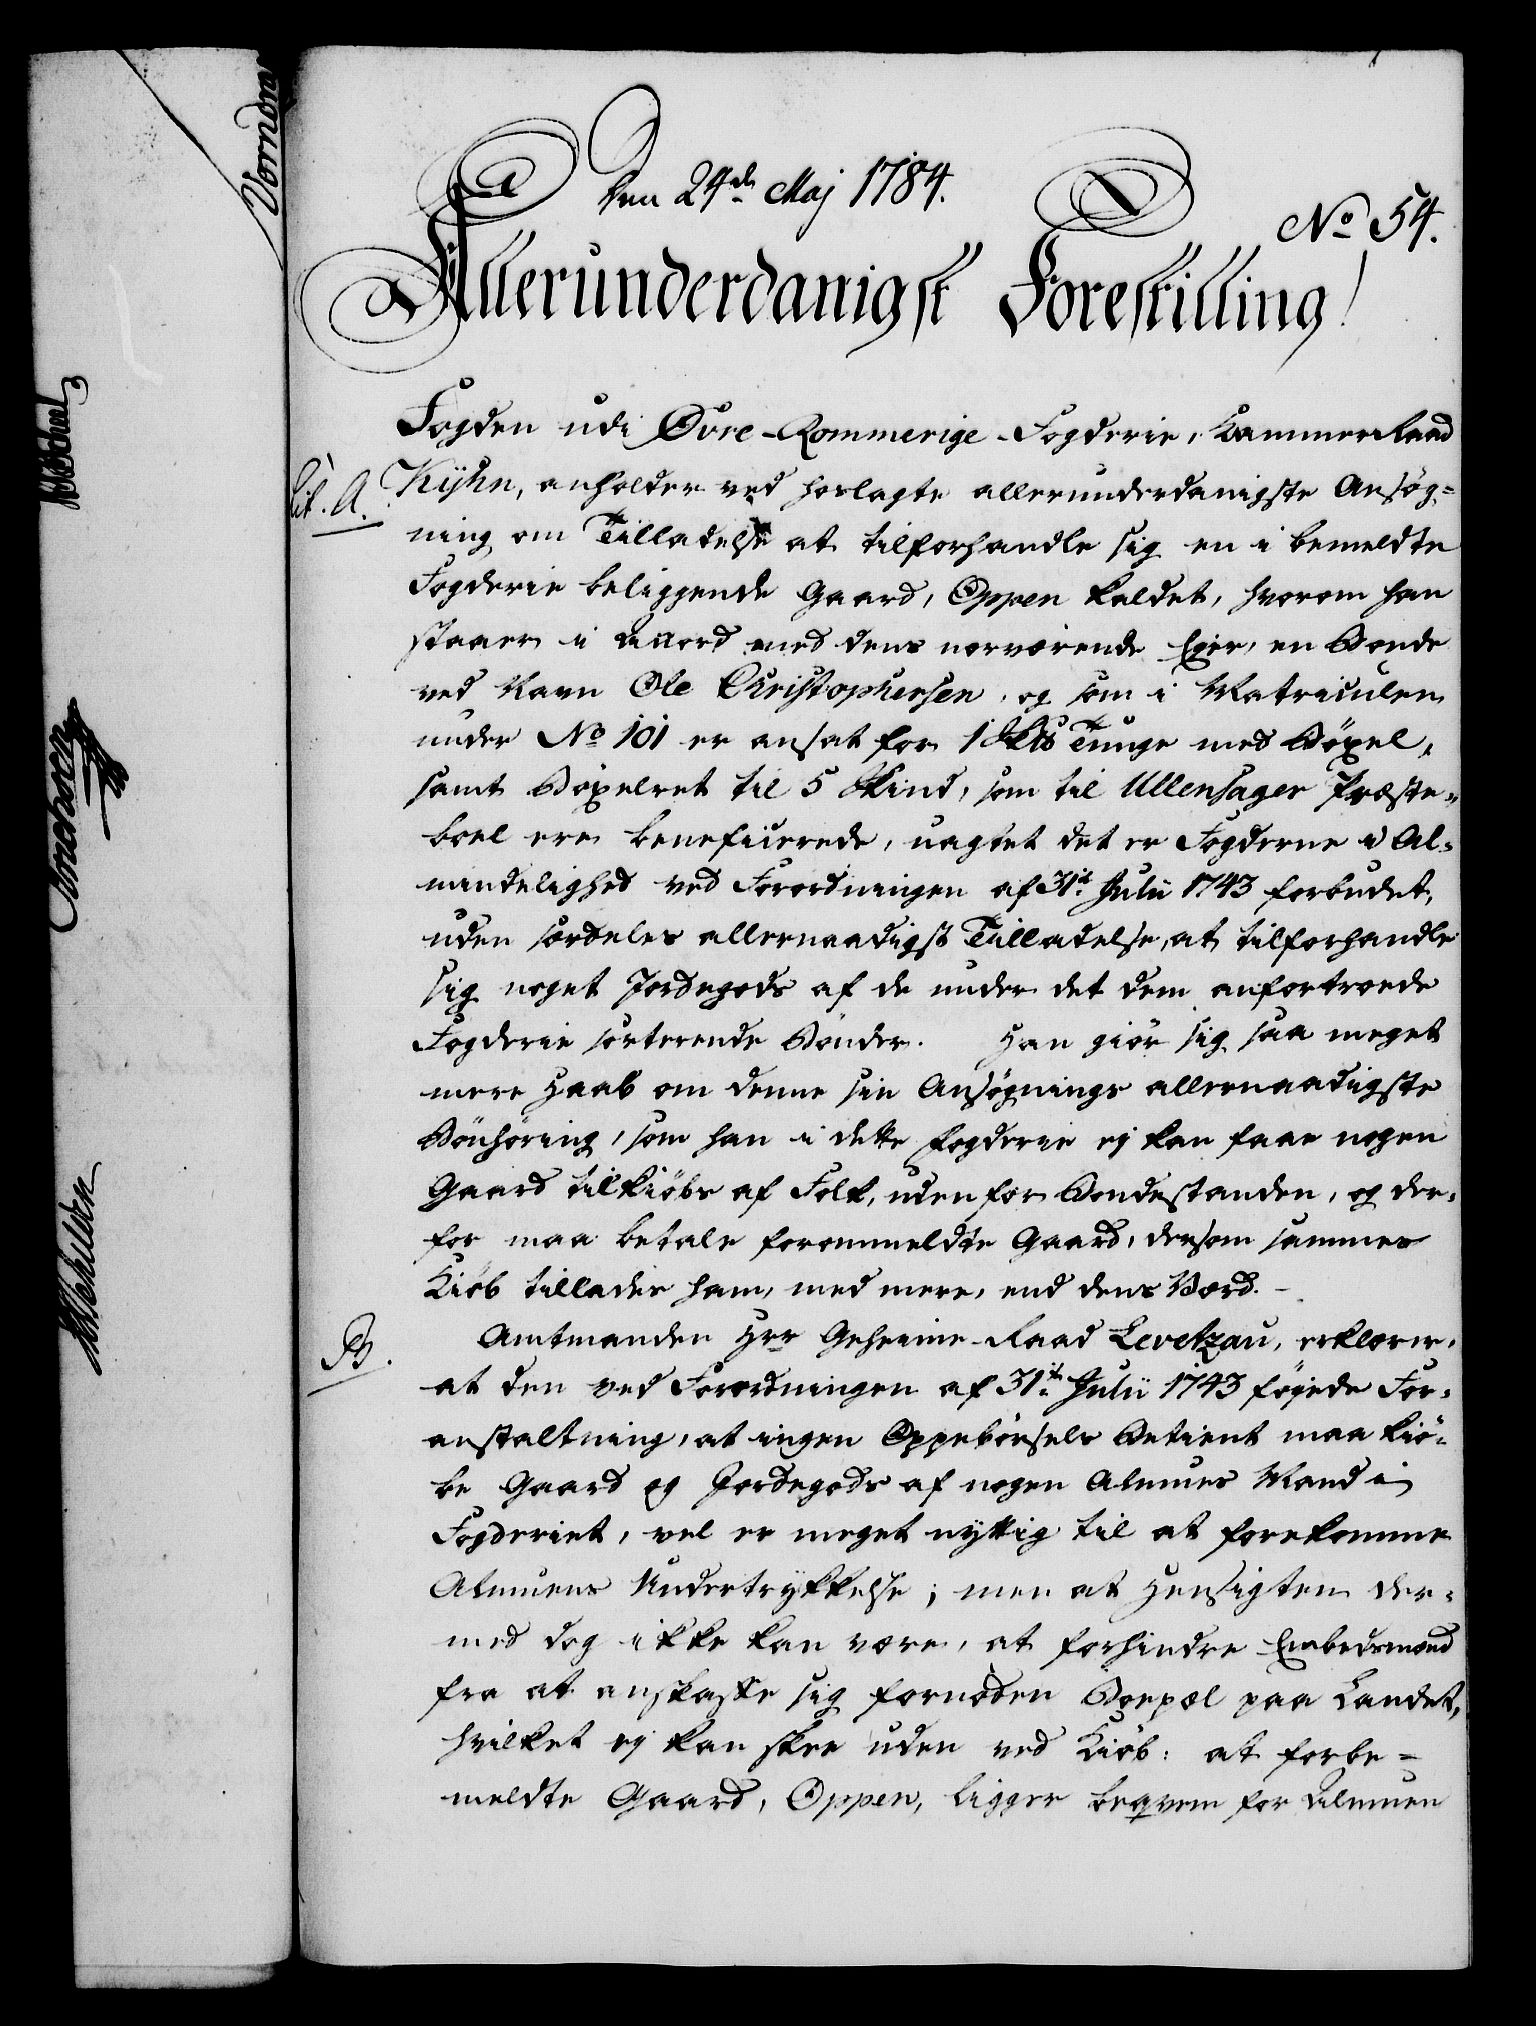 Den 24de Maj 1784.
No 54.
Allerunderdanigst Forestilling!
Fogden udi Øvre-Rommerige-Fogderie, Kammer Raad
Lit. A.
Kÿhn, anholder ved hoslagte allerunderdanigste Ansøg-
ning om Tilladelse at tilforhandle sig en i bemeldte
Fogderie beliggende Gaard, Oppen kaldet, hvorom han
staaer i Accord med dens nærværende Ejer, en Bonde
ved Navn Ole Christophersen, og som i Matriculen
under No 101 er ansat for 1 Skd Tunge med Bøxel,
samt Bøxelret til 5 Skind, som til Ullensager Præste-
boel ere beneficerede, uagtet det er Fogderne i Al-
mindelighed ved Forordningen af 31te Julii 1743 forbudet,
uden særdeles allernaadigst Tilladelse, at tilforhandle
sig noget Jordegods af de under det dem anfortroede
Fogderie sorterende Bønder. Han giør sig saa meget
mere Haab om denne sin Ansøgnings allernaadigste
Bönhöring, som han i dette Fogderie ej kan faae nogen
Gaard tilkiöbs af Folk, uden for Bondestanden, og der-
for maa betale forommeldte Gaard, dersom sammes
Kiöb tillades ham, med mere, end dens Værd.
B.
Amtmanden Hrr Geheime-Raad Levetzau, erklærer,
at den ved Forordningen af 31te Julii 1743 føjede For-
anstaltning, at ingen Oppebørsels Betient maa kiö-
be Gaard og Jordegods af nogen Almues Mand i
Fogderiet, vel er meget nyttig til at forekomme
Almuens Undertrykkelse; men at Hensigten der-
med dog ikke kan være, at forhindre Embedsmænd
fra at anskaffe sig fornøden Boepæl paa Landet,
hvilket ej kan skee uden ved Kiöb: at forbe-
meldte Gaard, Oppen, ligger beqvem for Almuen